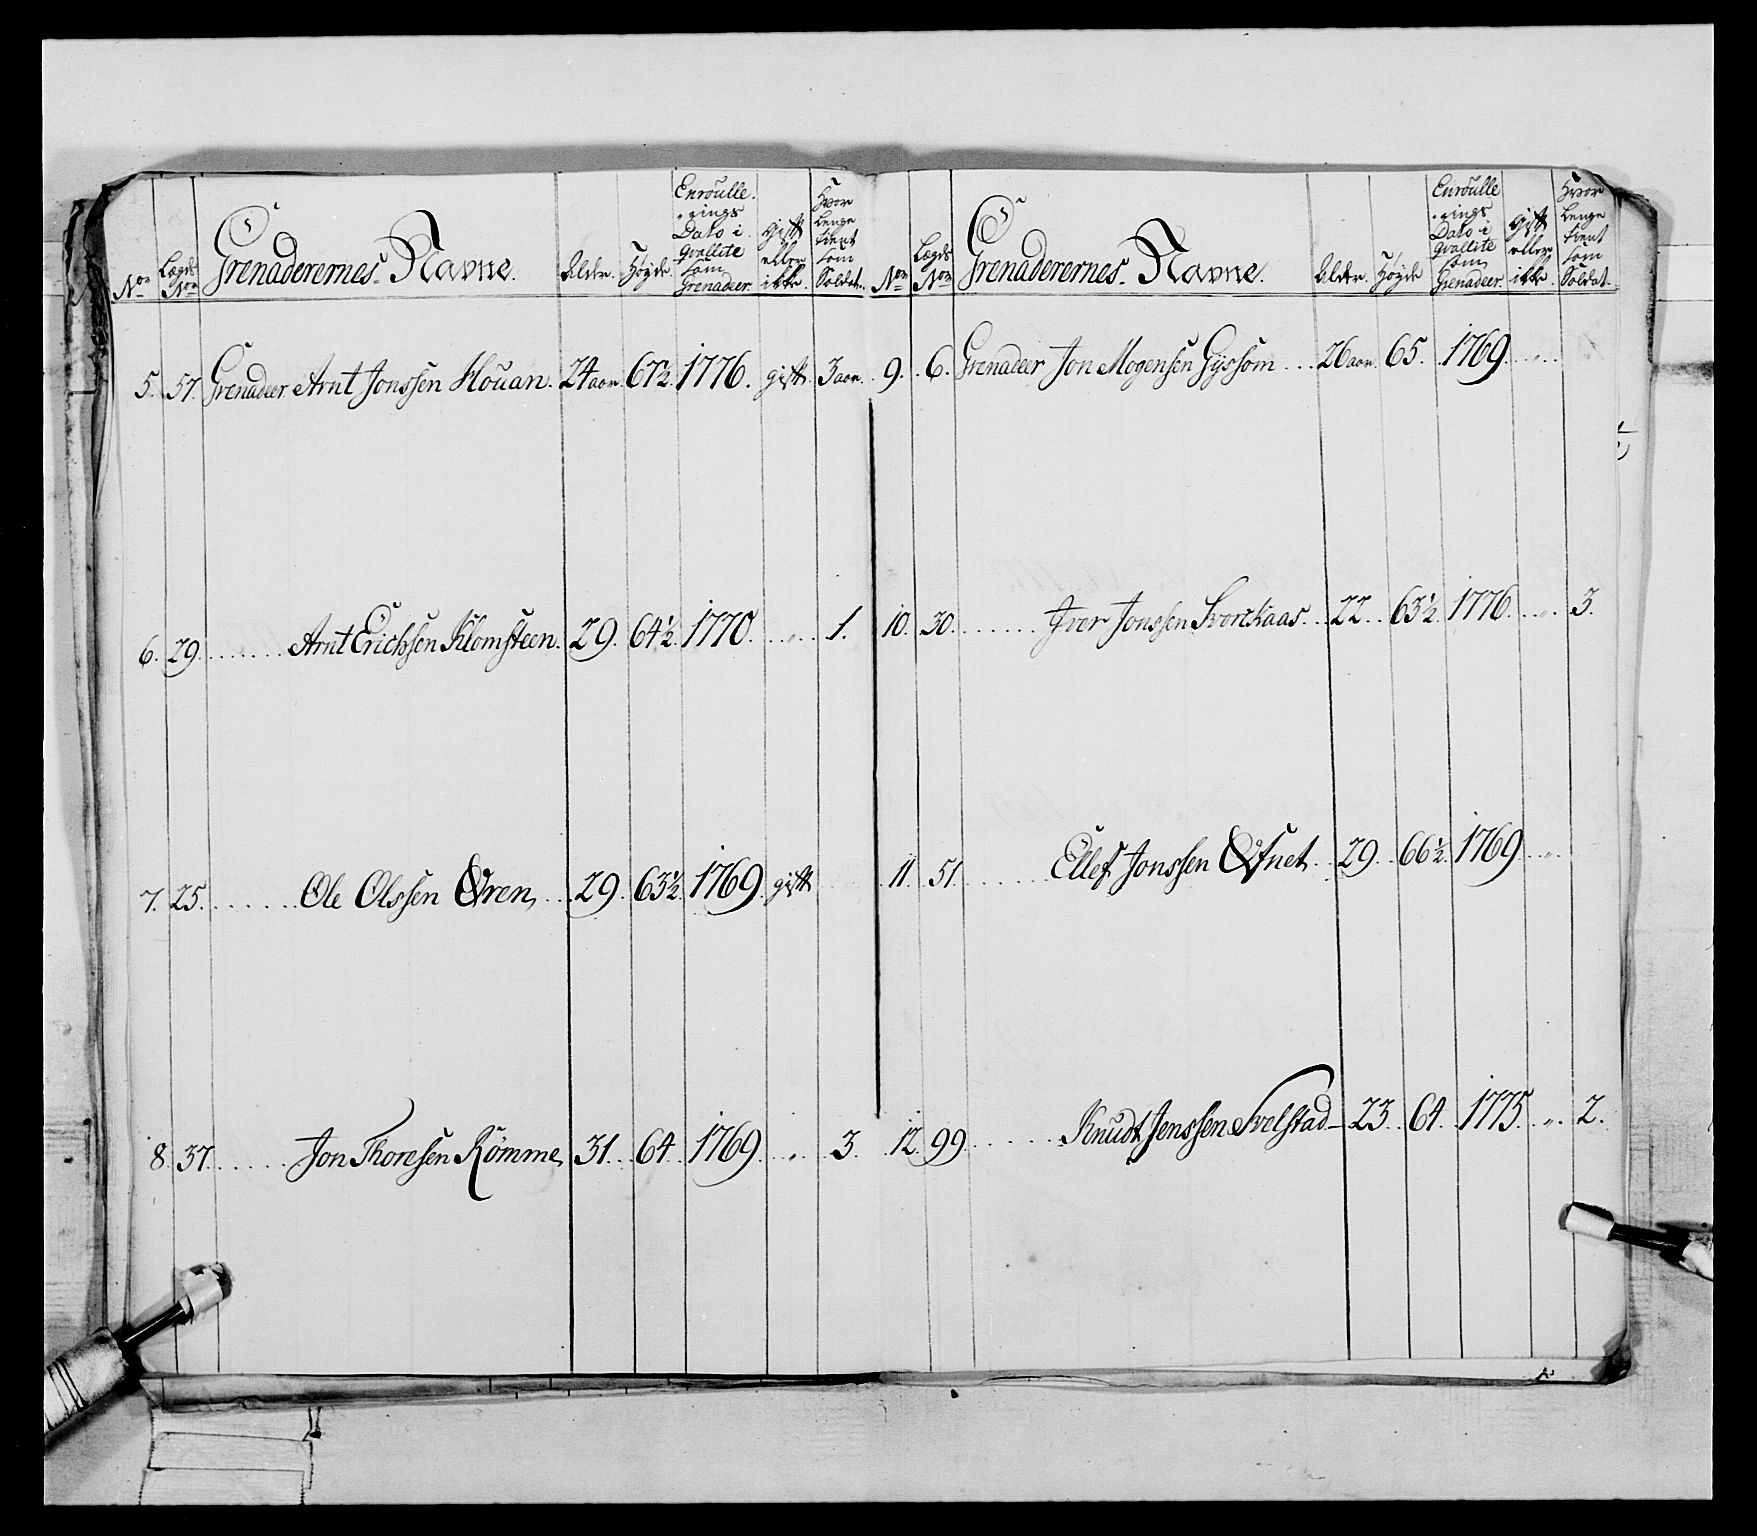 Nor
Lægds Nor
Grenaderernes Navne.
Alder.
Höyde
Enroulle-
rings
Dato i
Qvallite
som
Grenadeer.
Gift
eller
ikke.
Hvor
Lenge
tient
som
Soldat.
5. 57. Grenadeer Arnt Jonssen Houan. 24 aar. 67½ 1776. gift. 3 aar.
6. 29. Arnt Erichsen Klomsteen. 29. 64½ 1770. „ 1.
7. 25. Ole Olssen Øren 29. 63½ 1769. gift
8. 37. Jon Thoresen Römme 31. 64. 1769. „ 3.
Nor
Lægds Nor
Grenaderernes Navne.
Alder.
Höyde
Enroulle
rings
Dato i
Qvallite
som
Grenadeer.
Gift
eller
ikke.
Hvor
Lenge
tient
som
Soldat.
9. 6. Grenadeer Jon Mogensen 26 aar. 65. 1769. „
10. 30. Iver Jonssen Svorckaas. 22. 63½ 1776. „ 3.
11. 51. Ellef Jonssen 29. 66½ 1769. „
12. 99. Knudt Jenssen Svelstad 23. 64. 1775. „ 2.